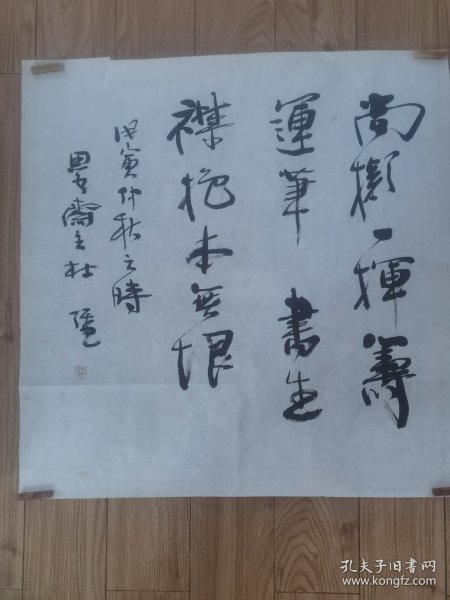 尚擬一揮籌
運筆 書生
襟抱本無垠
戊寅仲秋之時
齋主杜
孔夫子旧书网
www.kongfz.com